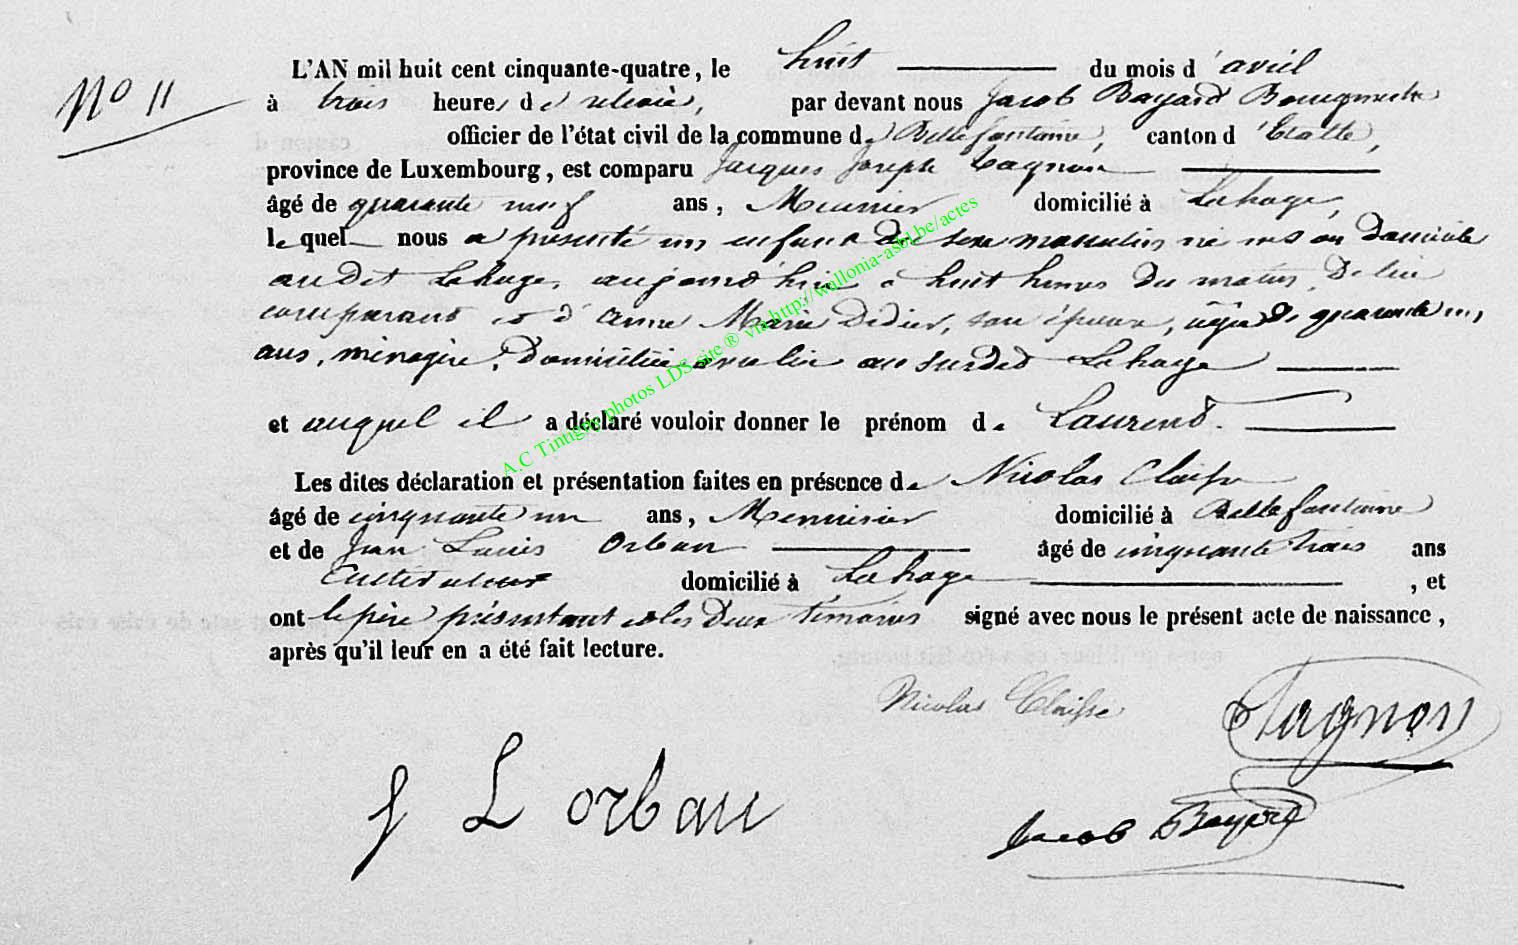 No 11
L'AN mil huit cent cinquante-quatre, le huit du mois d'avril
à trois heures de relevée, par devant nous Jacob Bayard Bourgmestre
officier de l'état civil de la commune de Bellefontaine, canton d'Etalle,
province de Luxembourg, est comparu Jacques Joseph Tagnon
âgé de quarante neuf ans, Meunier domicilié à Lahage,
lequel nous a présenté un enfant du sexe masculin né en son domicile
audit Lahage, aujourd'hui à huit heures du matin, de lui
comparant et d'Anne Marie Didier, son épouse, âgée de quarante un
ans, ménagère, domiciliée avec lui au surdit Lahage
et auquel il a déclaré vouloir donner le prénom de Laurent.
Les dites déclaration et présentation faites en présence de Nicolas Claisse
âgé de cinquante un ans, Menuisier domicilié à Bellefontaine
et de Jean Louis Orban âgé de cinquante trois ans
Cultivateur domicilié à Lahage, et
ont le père présentant et les deux témoins signé avec nous le présent acte de naissance,
après qu'il leur en a été fait lecture.
Nicolas Claisse
Tagnon
J L orban
Jacob Bayard
A.C Tintigny photos LDS site ® via http://wallonia-asbl.be/actes